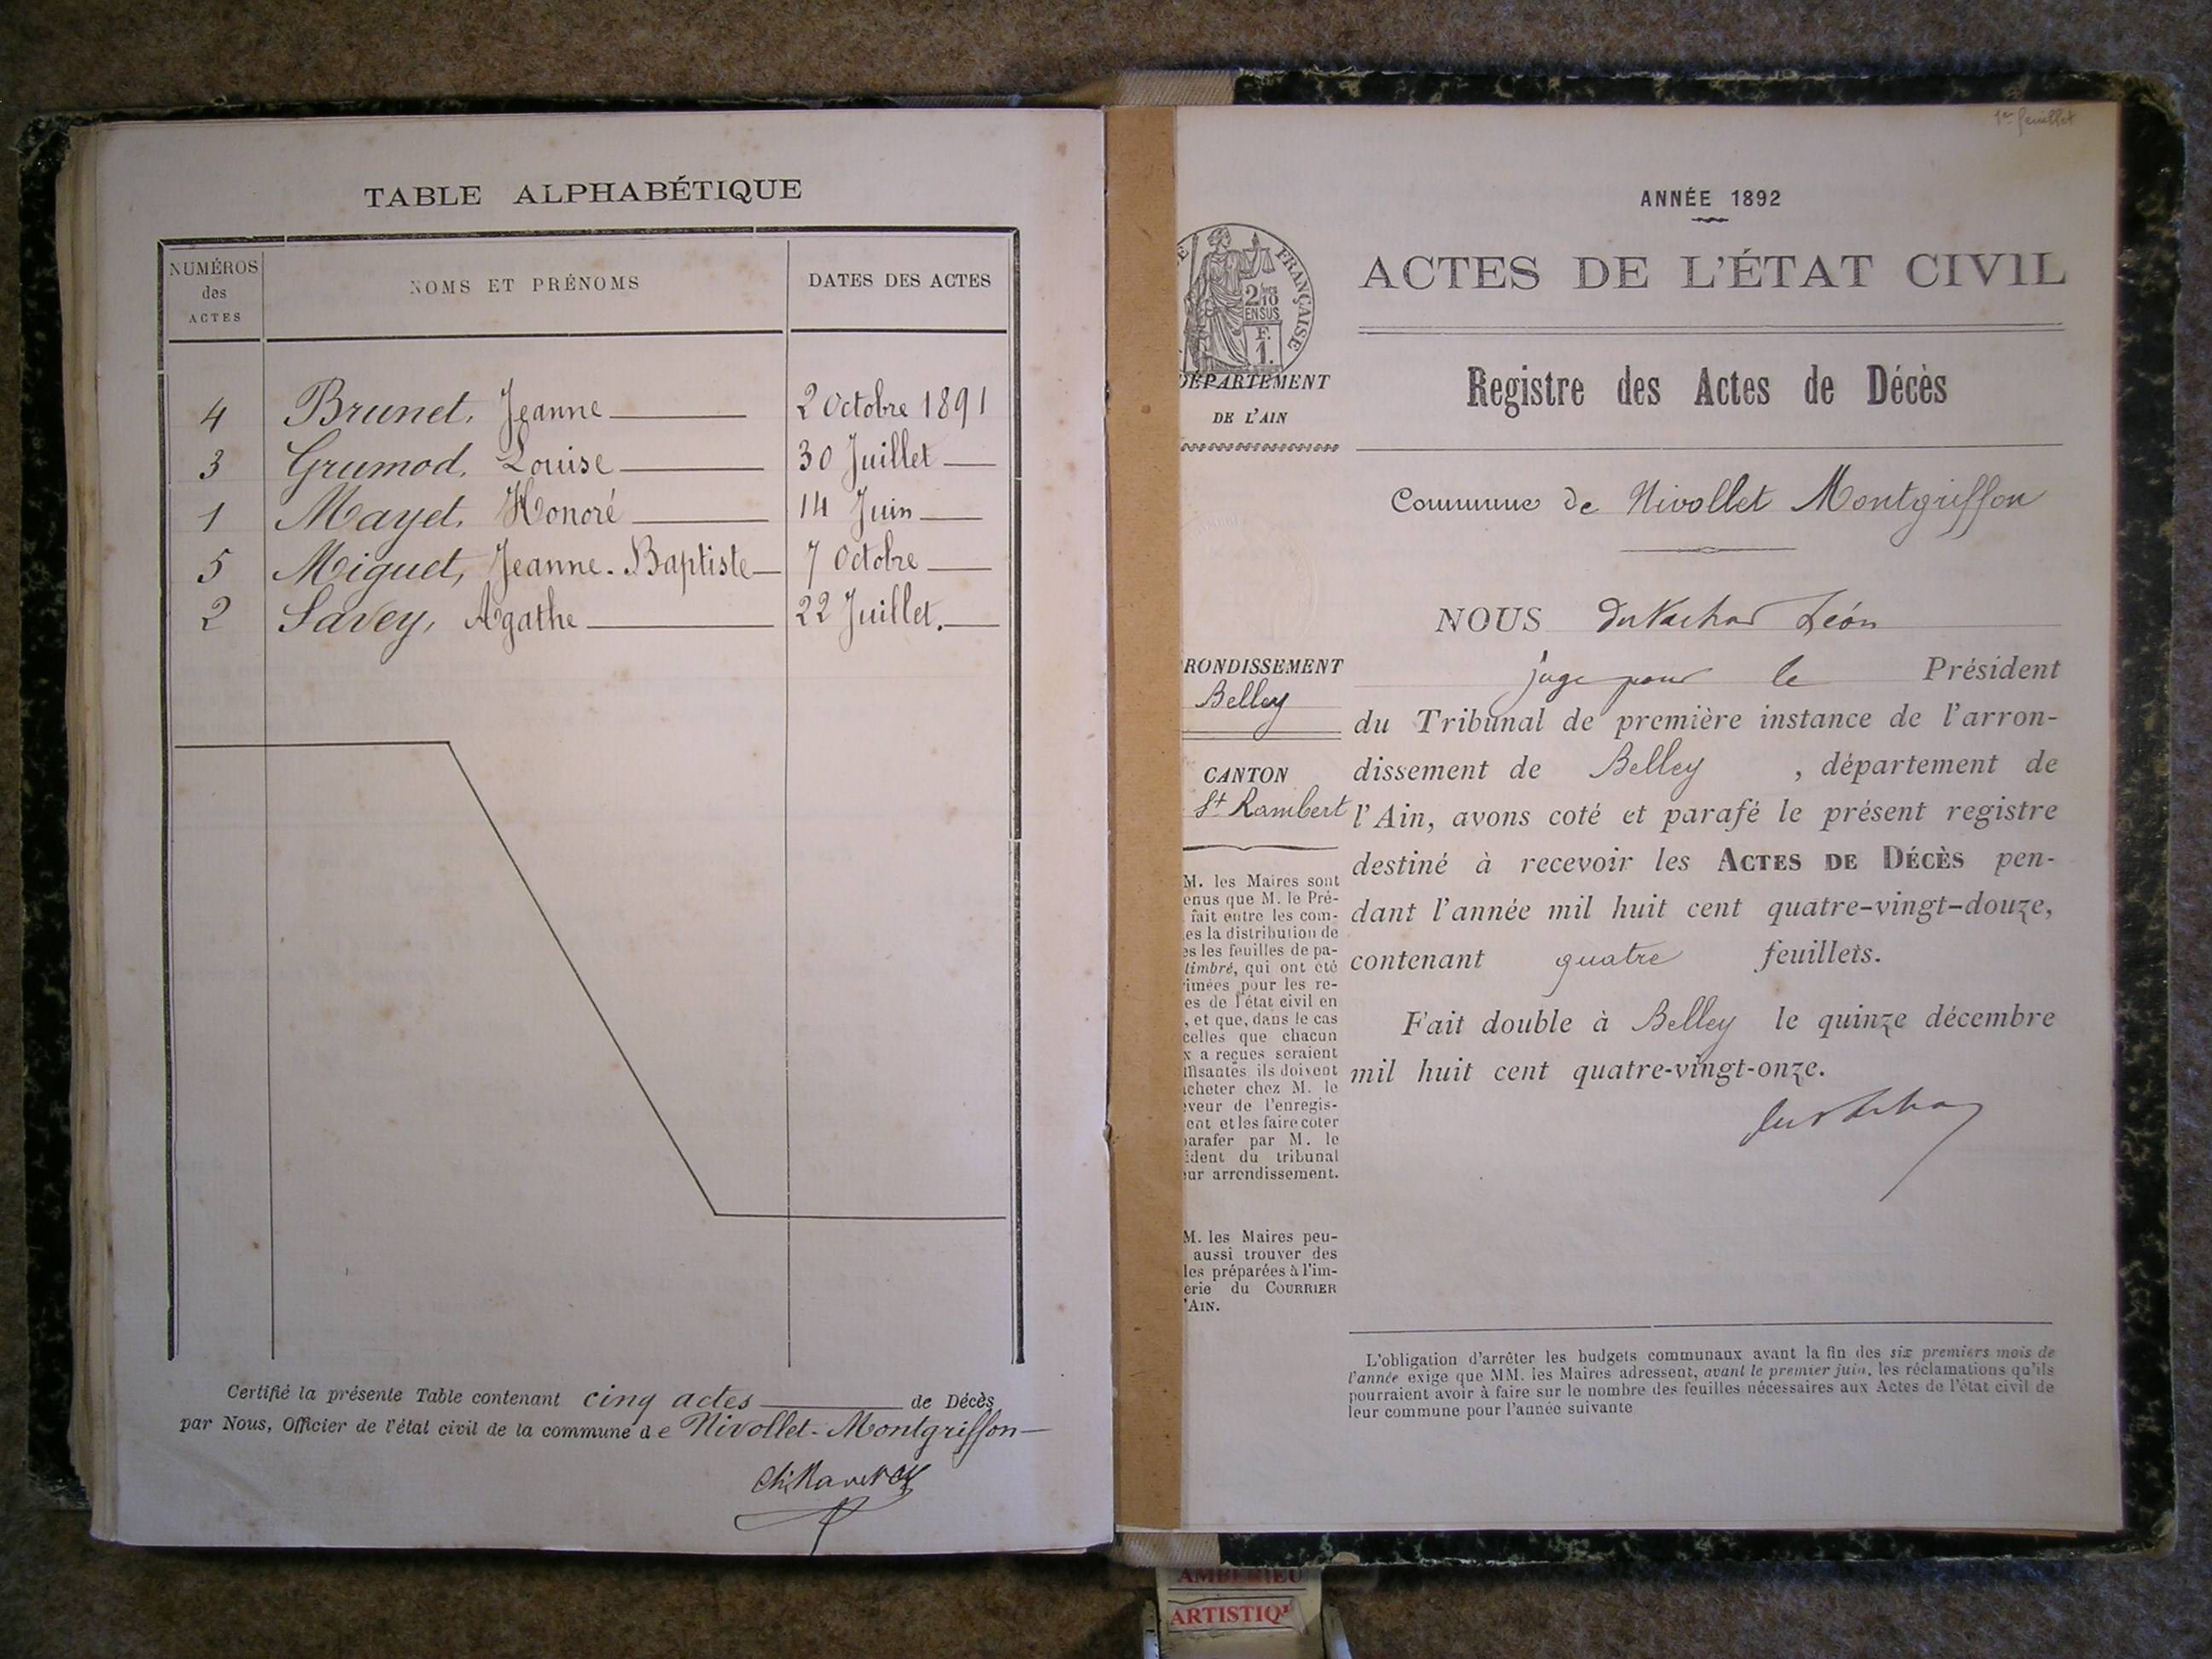 TABLE ALPHABÉTIQUE
NUMÉROS des ACTES
NOMS ET PRÉNOMS
DATES DES ACTES
4 Brunet, Jeanne 2 Octobre 1891
3 Grumod, Louise 30 Juillet
1 Mayet, Honoré 14 Juin
5 Miguet, Jeanne-Baptiste 7 Octobre
2 Savey, Agathe 22 Juillet.
Certifié la présente Table contenant cinq actes de Décès
par Nous, Officier de l'état civil de la commune de Nivollet-Montgriffon
1er feuillet
ANNÉE 1892
ACTES DE L'ÉTAT CIVIL
Registre des Actes de Décès
Commune de Nivollet Montgriffon
NOUS Léon
juge pour le Président
du Tribunal de première instance de l'arron-
dissement de Belley, département de
l'Ain, avons coté et parafé le présent registre
destiné à recevoir les ACTES DE DÉCÈS pen-
dant l'année mil huit cent quatre-vingt-douze,
contenant quatre feuillets.
Fait double à Belley le quinze décembre
mil huit cent quatre-vingt-onze.
L'obligation d'arrêter les budgets communaux avant la fin des six premiers mois de
l'année exige que MM. les Maires adressent, avant le premier juin, les réclamations qu'ils
pourraient avoir à faire sur le nombre des feuilles nécessaires aux Actes de l'état civil de
leur commune pour l'année suivante
FRANÇAISE
2/10
EN SUS
F.
1.
DÉPARTEMENT
DE L'AIN
RONDISSEMENT
Belley
CANTON
St Rambert
M. les Maires sont
enus que M. le Pré-
fait entre les com-
es la distribution de
es les feuilles de pa-
timbré, qui ont été
imées pour les re-
es de l'état civil en
, et que, dans le cas
celles que chacun
x a reçues seraient
ffisantes ils doivent
cheter chez M. le
veur de l'enregis-
ent et les faire coter
parafer par M. le
ident du tribunal
ur arrondissement.
M. les Maires peu-
aussi trouver des
les préparées à l'im-
erie du COURRIER
'AIN.
AMBERIEU
ARTISTIQ